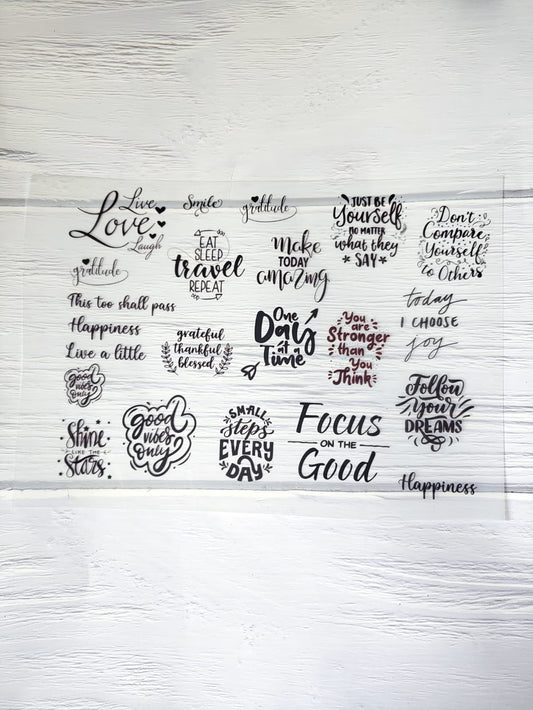 Live
Love
Laugh
Smile
gratitude
JUST BE
Yourself
NO MATTER
what they
SAY
Don't
Compare
Yourself
to Others
gratitude
EAT
SLEEP
travel
REPEAT
Make
TODAY
amazing
This too shall pass
Happiness
Live a little
grateful
thankful
blessed
One
Day
at a
Time
You
are
Stronger
than
You
Think
today
I CHOOSE
joy
good
vibes
only
Shine
LIKE THE
Stars
good
vibes
only
SMALL
steps
EVERY
DAY
Focus
ON THE
Good
Follow
Your
DREAMS
Happiness